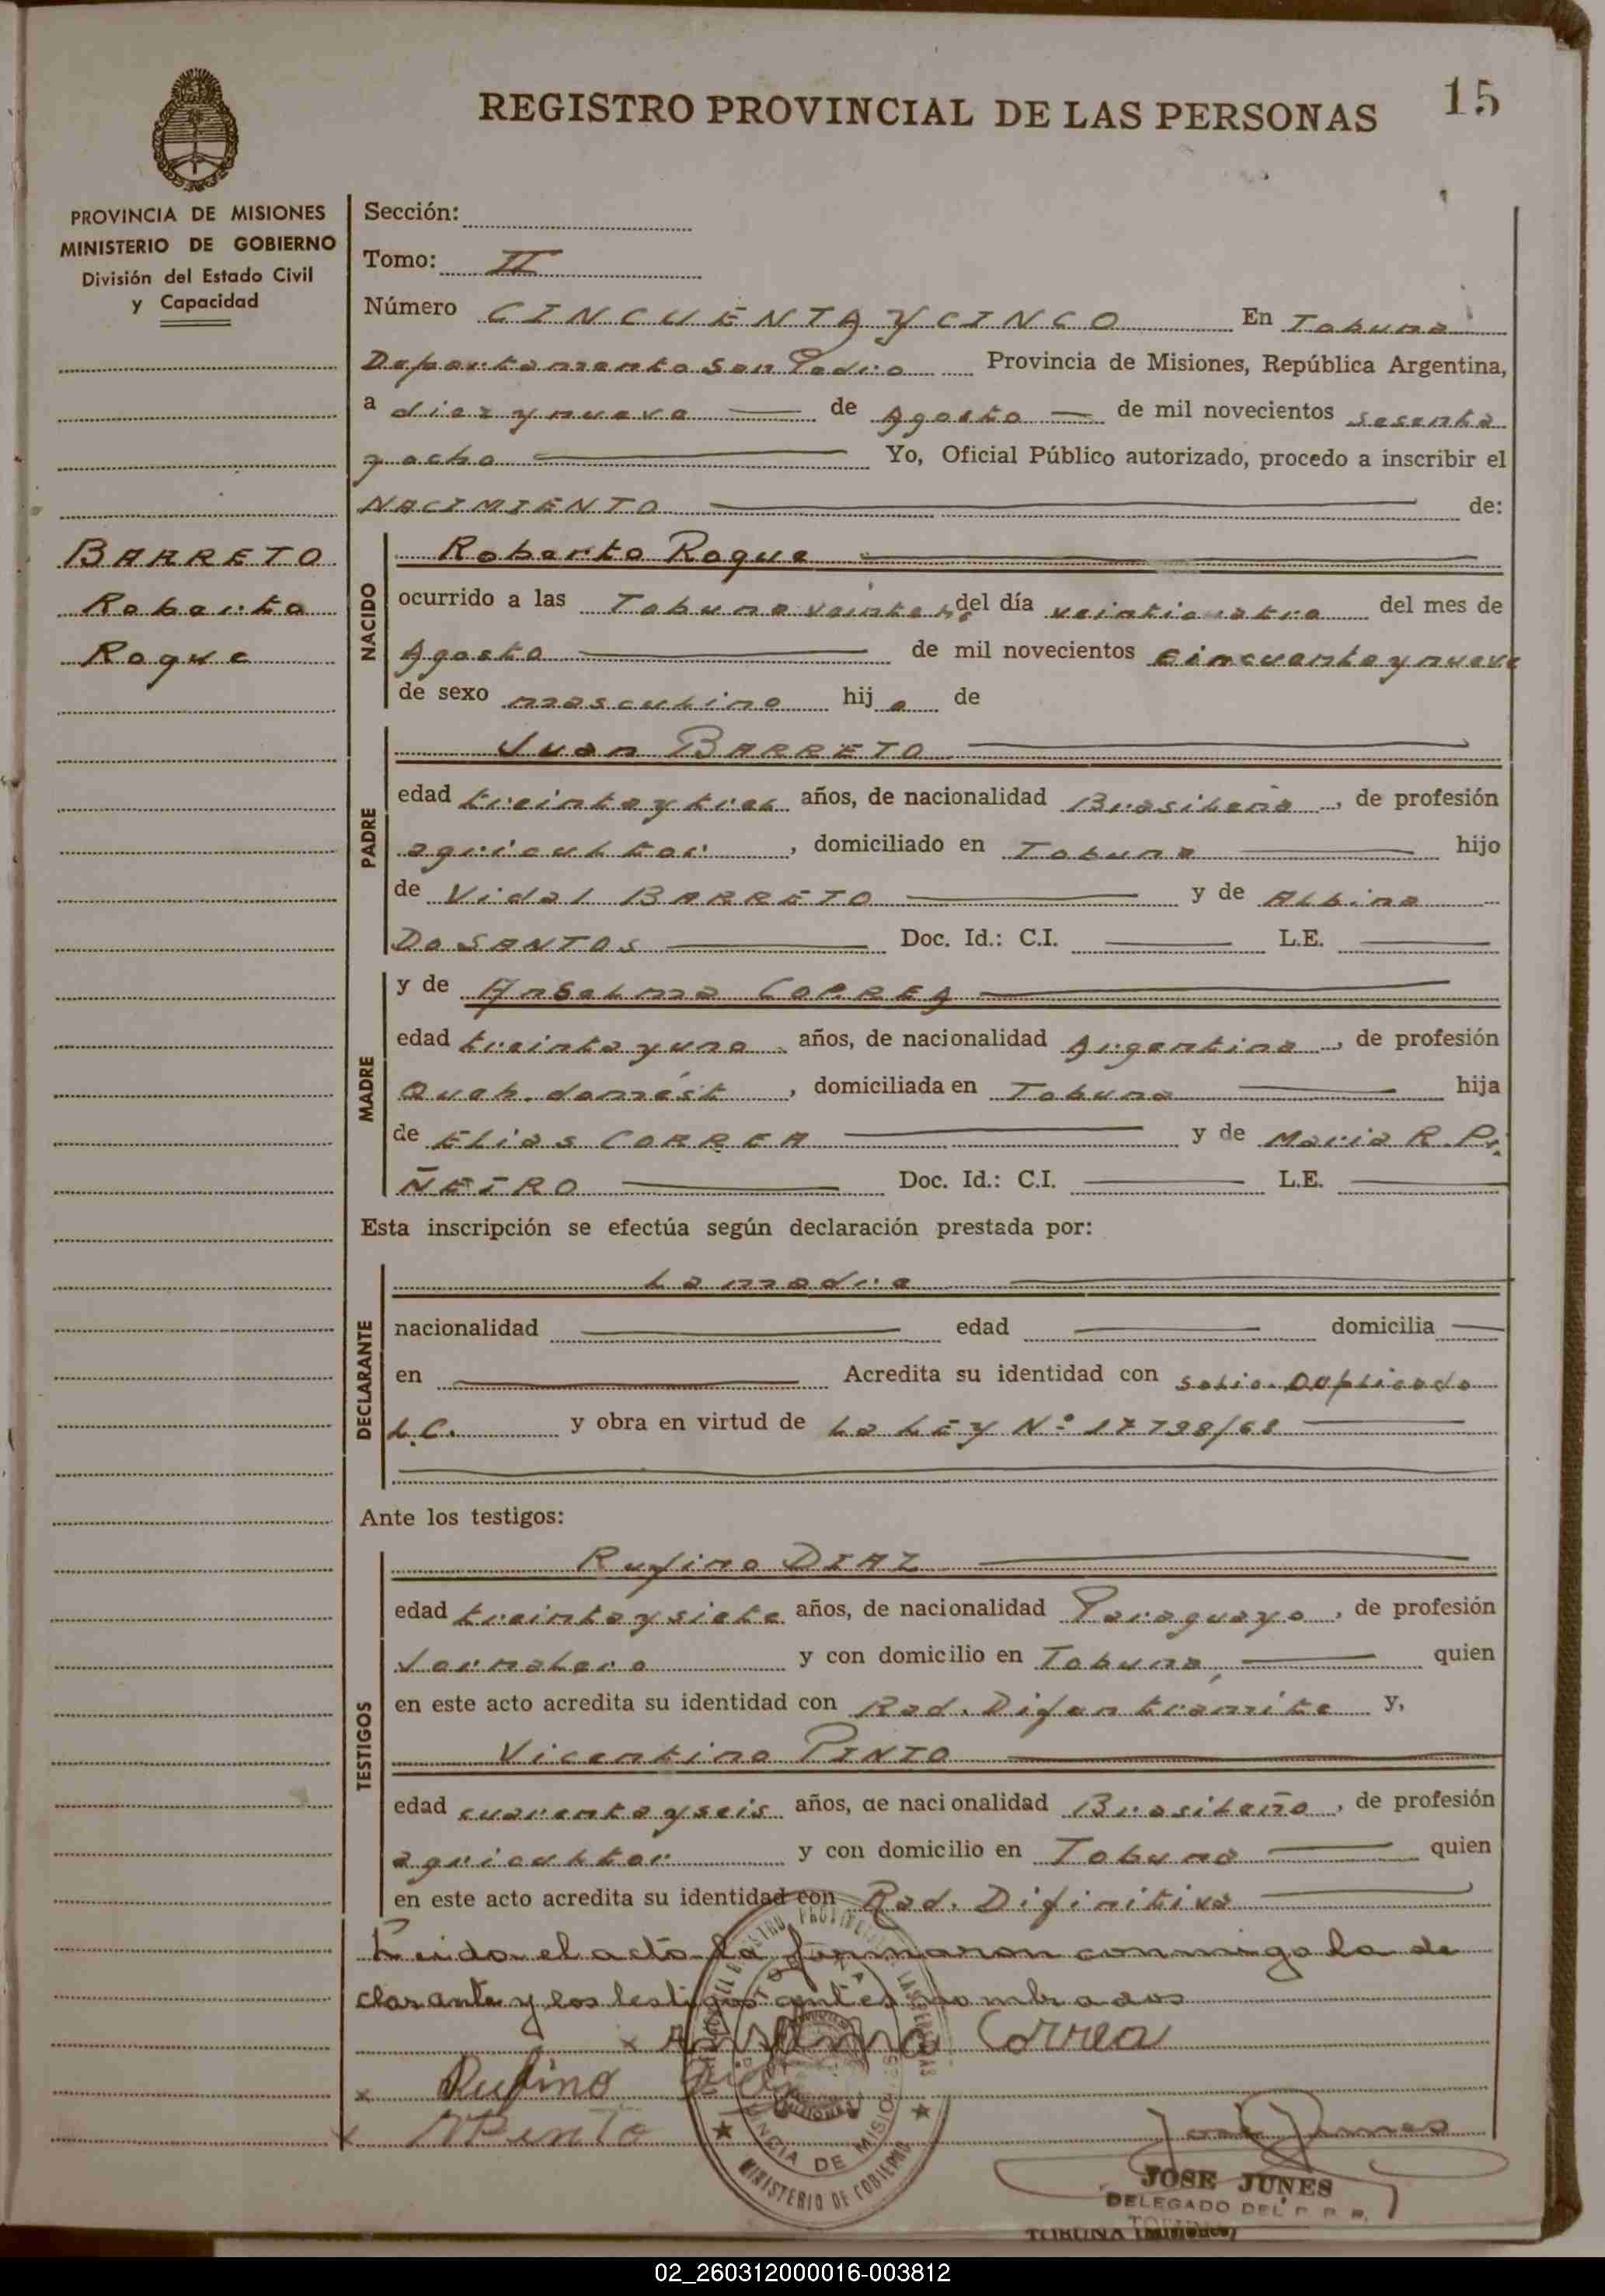 15
REGISTRO PROVINCIAL DE LAS PERSONAS
PROVINCIA DE MISIONES
MINISTERIO DE GOBIERNO
División del Estado Civil
y Capacidad
Sección:
Tomo: II
Número CINCUENTA Y CINCO En Tobuna
Departamento San Pedro Provincia de Misiones, República Argentina,
a diez y nueve de Agosto de mil novecientos sesenta
y ocho Yo, Oficial Público autorizado, procedo a inscribir el
NACIMIENTO de:
BARRETO
Roberto
Roque
NACIDO
Roberto Roque
ocurrido a las Tobuna veinte hs del día veinticuatro del mes de
Agosto de mil novecientos cincuenta y nueve
de sexo masculino hijo de
PADRE
Juan BARRETO
edad treinta y tres años, de nacionalidad Brasileña, de profesión
agricultor, domiciliado en Tobuna hijo
de Vidal BARRETO y de Albina
Do SANTOS Doc. Id.: C.I. L.E.
MADRE
y de Anselma CORREA
edad treinta y una años, de nacionalidad Argentina, de profesión
Queh. domést, domiciliada en Tobuna hija
de Elias CORREA y de Maria R. Pi
ÑEIRO Doc. Id.: C.I. L.E.
Esta inscripción se efectúa según declaración prestada por:
DECLARANTE
La madre
nacionalidad edad domicilia
en Acredita su identidad con solic. Duplicado
L.C. y obra en virtud de La LEY Nº 17798/68
Ante los testigos:
TESTIGOS
Rufino DIAZ
edad treinta y siete años, de nacionalidad Paraguayo, de profesión
Jornalero y con domicilio en Tobuna, quien
en este acto acredita su identidad con Rad. Dif en trámite y,
Vicentino PINTO
edad cuarenta y seis años, de nacionalidad Brasileño, de profesión
agricultor y con domicilio en Tobuna quien
en este acto acredita su identidad con Rad. Difinitiva
Leido el acto la firmaron conmigo la de
clarante y los testigos antes nombrados
x Anselma Correa
x Rufino Diaz
x VPinto
José Junes
JOSE JUNES
DELEGADO DEL R. P. P.
TOBUNA (Misiones)
PROVINCIA DE MISIONES
MINISTERIO DE GOBIERNO
02_260312000016-003812